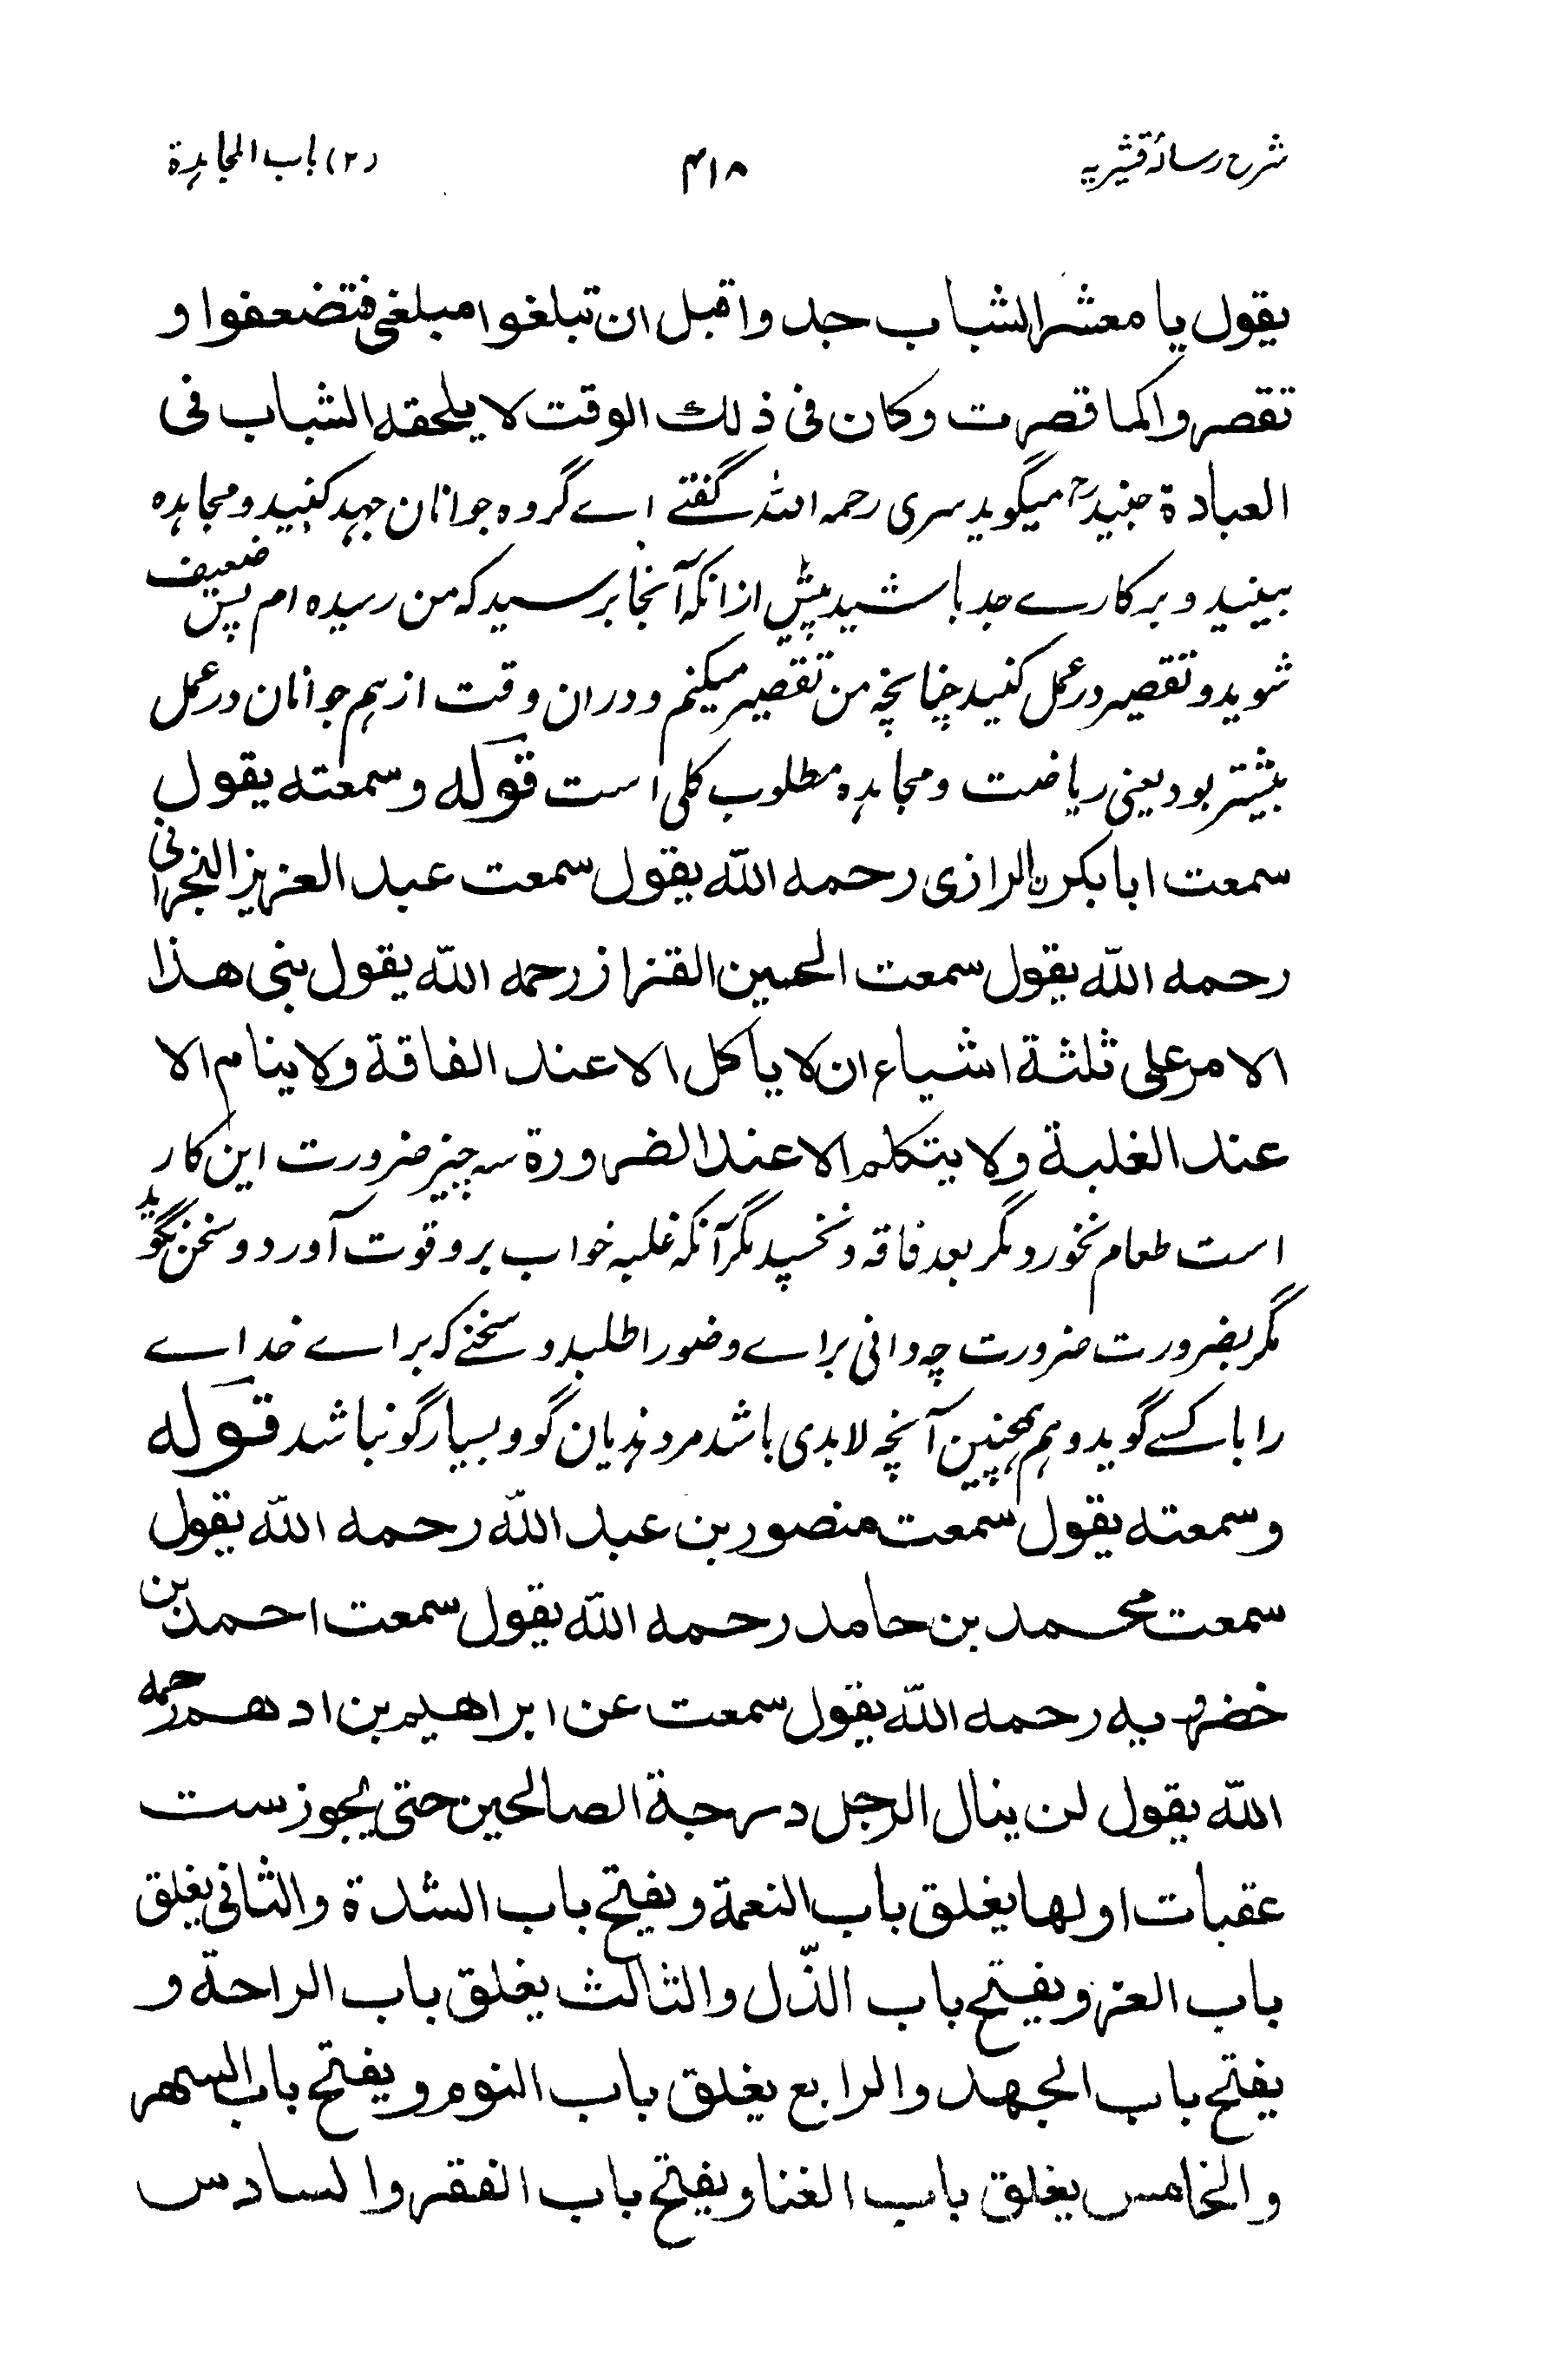 شرح رسالۂ قشیریہ ۴۱۸ (۲) باب المجاہدة
یقول یا معشر الشباب جدوا قبل ان تبلغوا مبلغی فتضعفوا و
تقصروا کما قصرت وکان فی ذلك الوقت لا یلحقه الشباب فی
العبادة جنیدؒ میگوید سری رحمہ اللہ گفتے اے گروہ جوانان جہد کنید و مجاہدہ
بینید و برکارے جد باشید پیش ازانکہ آنجا برسید کہ من رسیدہ ام پس ضعیف
شوید و تقصیر در عمل کنید چنانچہ من تقصیر میکنم و دران وقت از ہم جوانان در عمل
بیشتر بود یعنی ریاضت و مجاہدہ مطلوب کلی است قوله وسمعته یقول
سمعت ابا بکرن الرازی رحمه الله یقول سمعت عبد العزیز النجرانی
رحمه الله یقول سمعت الحسین القزاز رحمه الله یقول بنی هذا
الامر علی ثلثة اشیاء ان لا یاکل الا عند الفاقة ولا ینام الا
عند الغلبة ولا یتکلم الا عند الضرورة سہ چیز ضرورت این کار
است طعام نخورد مگر بعد فاقہ و نخسپد مگر آنکہ غلبہ خواب برو قوت آورد و سخن نگوید
مگر بضرورت ضرورت چہ دانی براے وضو را طلبد و سخنے کہ براے خداے
را با کسے گوید و ہمچنین آنچہ لابدی باشد مرد ہذیان گو و بسیار گو نباشد قوله
وسمعته یقول سمعت منصور بن عبد الله رحمه الله یقول
سمعت محمد بن حامد رحمه الله یقول سمعت احمد بن
خضرویه رحمه الله یقول سمعت عن ابراهیم بن ادهم رحمه
الله یقول لن ینال الرجل درجة الصالحین حتی یجوز ست
عقبات اولها یغلق باب النعمة ویفتح باب الشدة والثانی یغلق
باب العز ویفتح باب الذّل والثالث یغلق باب الراحة و
یفتح باب الجهد والرابع یغلق باب النوم ویفتح باب السهر
والخامس یغلق باب الغنا ویفتح باب الفقر والسادس